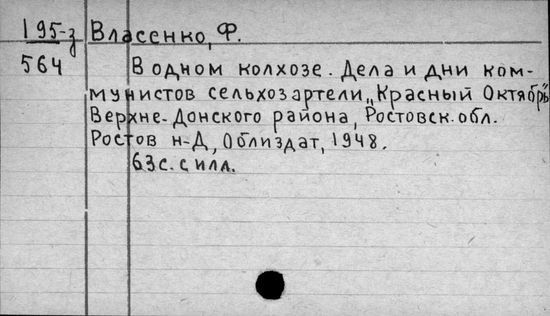 195-з Власенко, Ф.
564 В одном колхозе. Дела и дни ком-
мунистов сельхозартели „Красный Октябрь"
Верхне-Донского района, Ростовск. обл.
Ростов н-Д, Облиздат, 1948.
63 с. с илл.